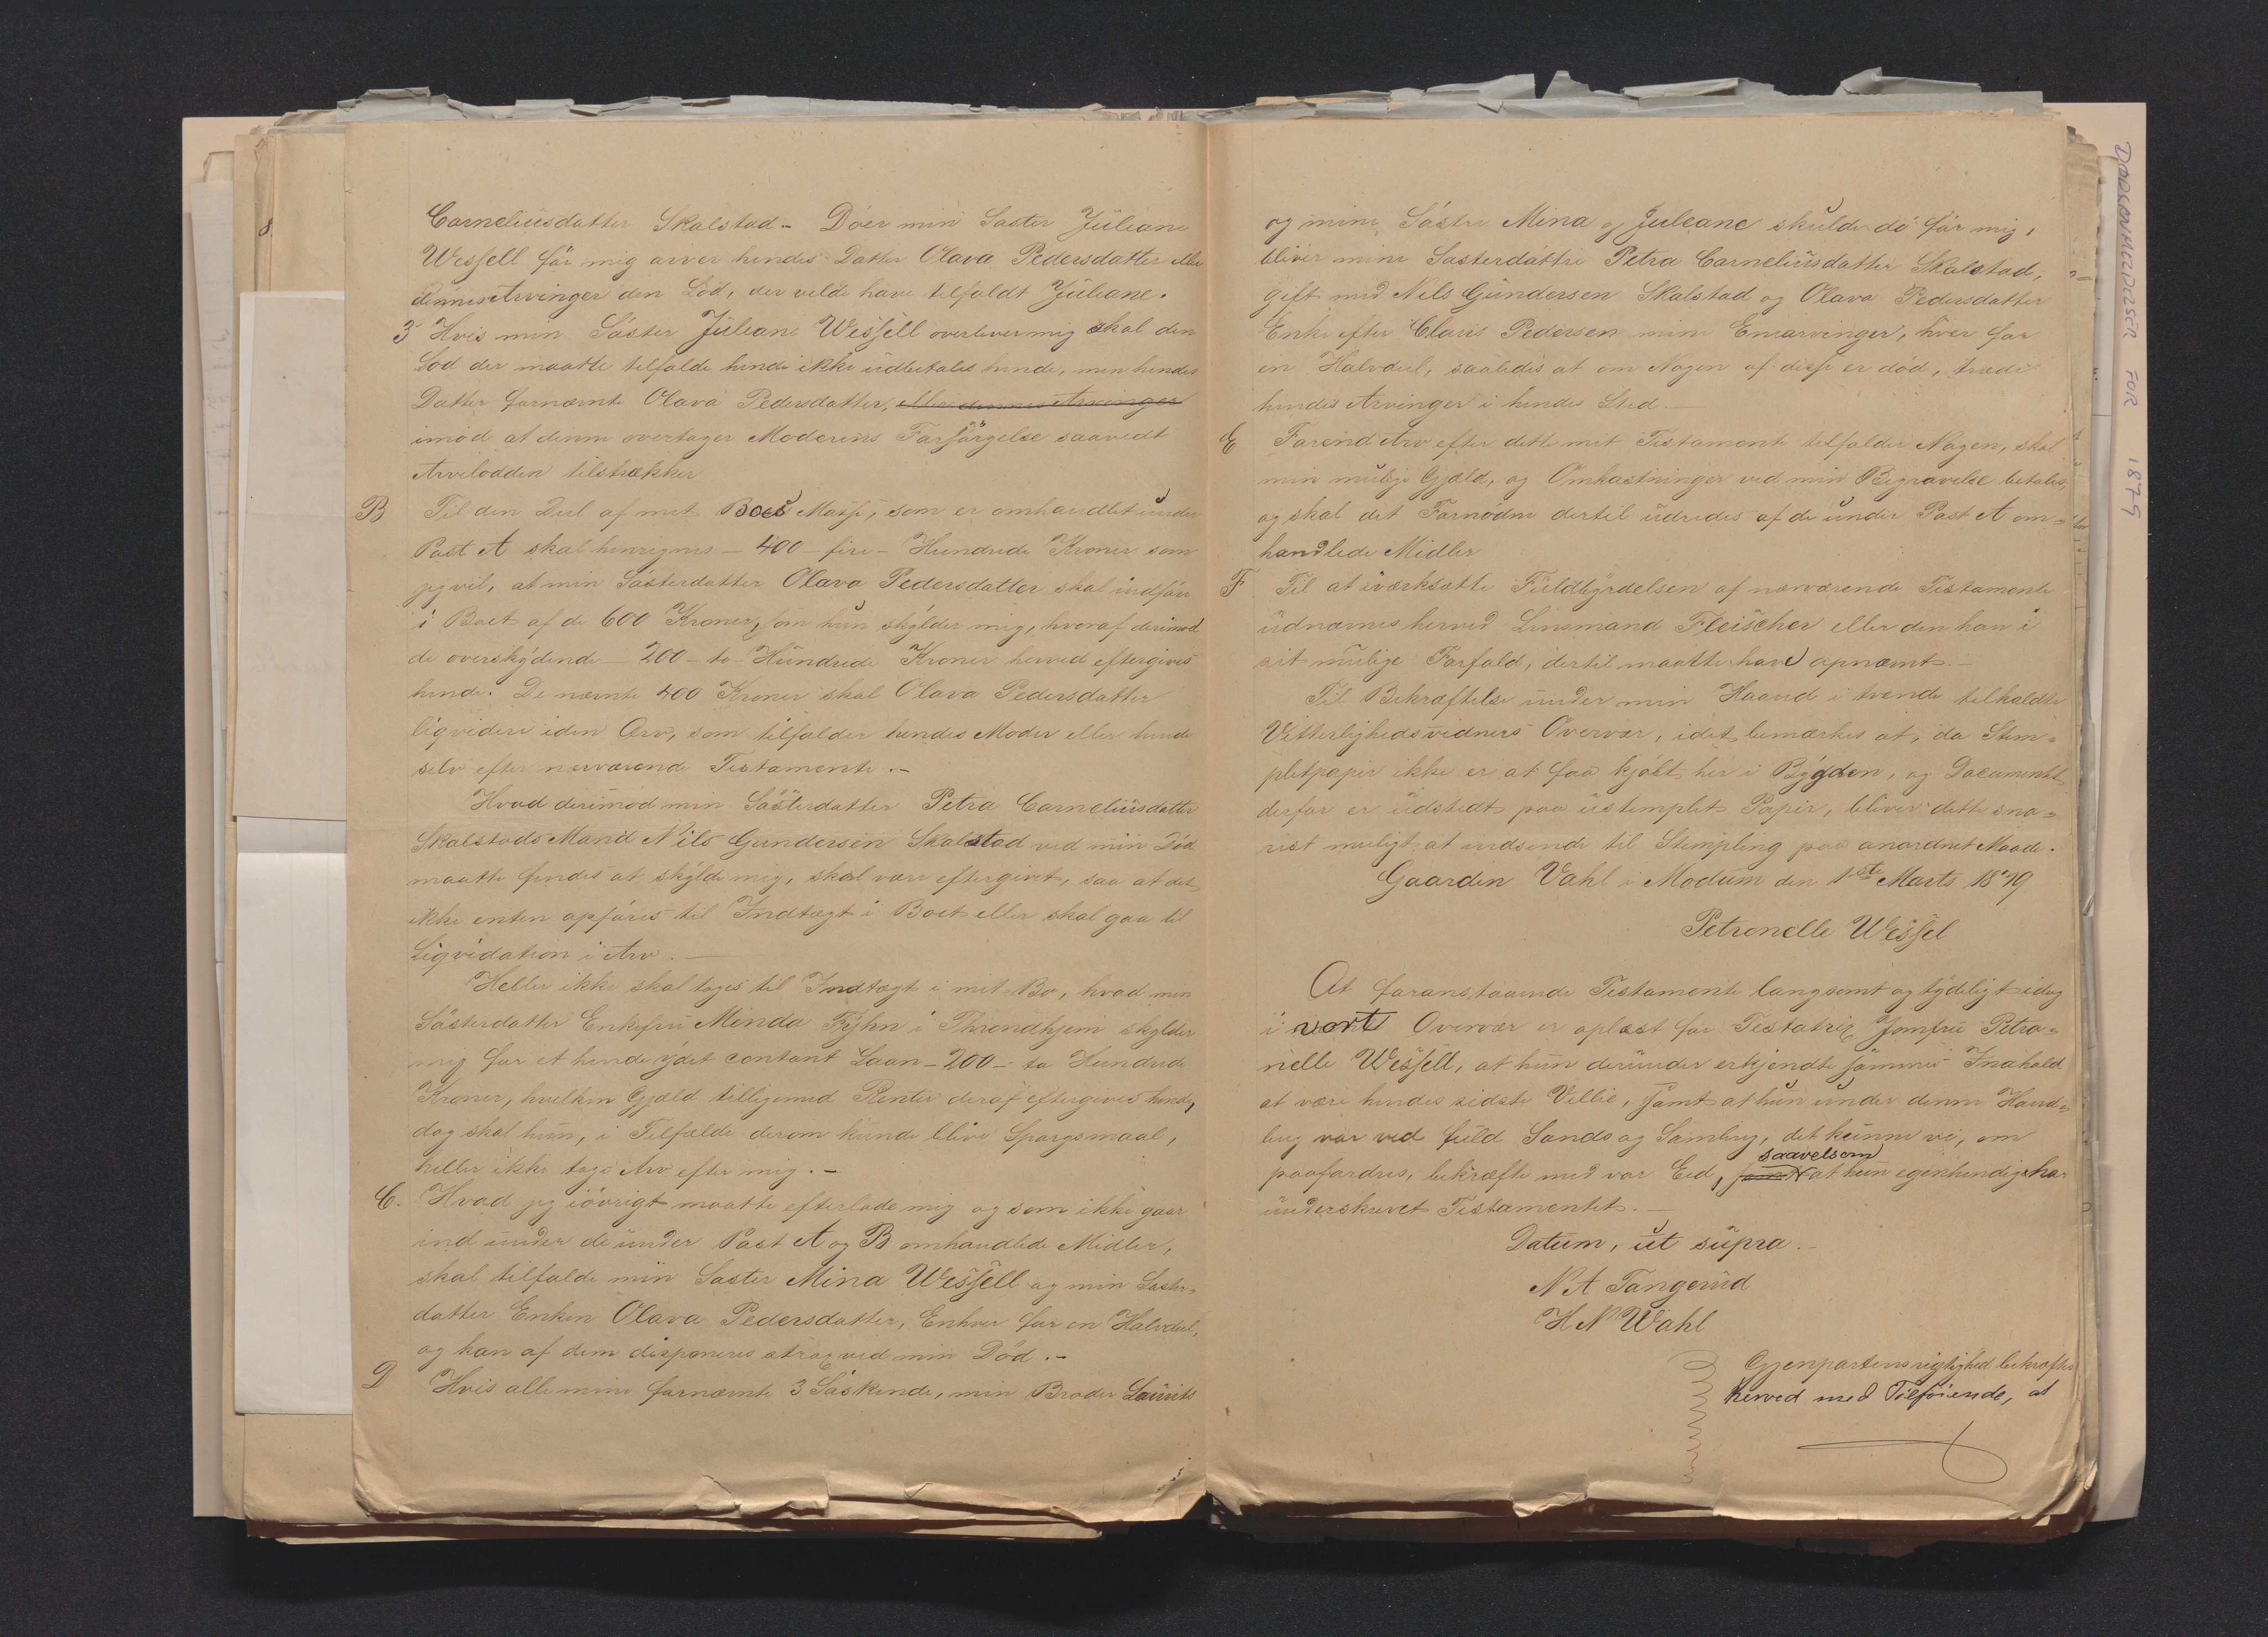 Corneliusdatter Skalstad - Döer min Söster Juliane
Wessell för mig arver hendes Datter Olava Pedersdatter eller
dennes Arvinger den Lod, der vilde have tilfaldt Juliane.
3 Hvis min Söster Juliane Wessell overlever mig skal den
Lod der maatte tilfalde hende ikke udbetales hende, men hendes
Datter fornævnte Olava Pedersdatter, eller dennes Arvinger
imod at denne overtager Moderens Forsörgelse saavidt
Arvelodden tilstrækker
B Til den Deel af mit Boes Masse, som er omhandlet under
Post A skal henregnes - 400 - fire - Hundrede Kroner som
jeg vil, at min Sösterdatter Olava Pedersdatter skal indföre
i Boet af de 600 Kroner, som hun skylder mig, hvoraf derimod
de overskydende - 200 - to - Hundrede Kroner herved eftergives
hende. De nævnte 400 Kroner skal Olava Pedersdatter
liqvidere i den Arv, som tilfalder hendes Moder eller hende
selv efter nærværende Testamente. -
Hvad derimod min Sösterdatter Petra Corneliusdatter
Skalstads Mand Nils Gundersen Skalstad ved min Död
maatte findes at skylde mig, skal være eftergivet, saa at det
ikke enten opföres til Indtægt i Boet eller skal gaa til
Liqvidation i Arv. -
Heller ikke skal tages til Indtægt i mit Bo, hvad min
Sösterdatter Enkefru Minda Fyhn i Throndhjem skylder
mig for et hende ydet contant Laan - 200 - to Hundrede
Kroner, hvilken Gjæld tilligemed Renter deraf eftergives hende,
dog skal hun, i Tilfælde derom kunde blive Spörgsmaal,
heller ikke tage Arv efter mig. -
C. Hvad jeg iövrigt maatte efterlade mig og som ikke gaar
ind under de under Post A og B omhandlede Midler,
skal tilfalde min Söster Mina Wessell og min Söster-
datter Enken Olava Pedersdatter, Enhver for en Halvdeel,
og kan af dem disponeres strax ved min Död. -
D Hvis alle mine fornævnte 3 Söskende, min Broder Laurits
og mine Söstre Mina og Juleane skulde dö för mig,
bliver mine Sösterdöttre Petra Corneliusdatter Skalstad,
gift med Nils Gundersen Skalstad og Olava Pedersdatter
Enke efter Claus Pedersen mine Enearvinger, hver for
en Halvdeel, saaledes at om Nogen af disse er död, træde
hendes Arvinger i hendes Sted. -
E Förend Arv efter dette mit Testamente tilfalder Nogen, skal
min mulige Gjæld, og Omkostninger ved min Begravelse betales,
og skal det Fornödne dertil udredes af de under Post A om-
handlede Midler
F Til at iværksætte Fuldbyrdelsen af nærværende Testamente
udnævnes herved Lensmand Fleischer eller den han i
sit mulige Forfald, dertil maatte have opnævnt. -
Til Bekræftelse under min Haand i tvende tilkaldte
Vitterlighedsvidners Overvær, idet bemærkes at, da Stem-
pletpapir ikke er at faa kjöbt her i Bygden, og Documentet
derfor er udstedt paa ustemplet Papir, bliver dette sna-
rest muligt at indsende til Stempling paa anordnet Maade.
Gaarden Vahl i Modum den 1ste Marts 1879
Petronelle Wessel
At foranstaaende Testamente langsomt og tydeligt idag
i vort Overvær er oplæst for Testatrix Jomfru Petro-
nelle Wessell, at hun derunder erkjendte sammes Indhold
at være hendes sidste Villie, samt at hun under denne Hand-
ling var ved fuld Sands og Samling, det kunne vi, om
paafordres, bekræfte med vor Eed, saavelsom at hun egenhendig har
underskrevet Testamentet. -
Datum, ut supra. -
N A Tangerud
H N Wahl
Gjenpartens rigtighed bekræftes
herved med Tilföiende, at
DØDSANMELDELSER FOR 1875